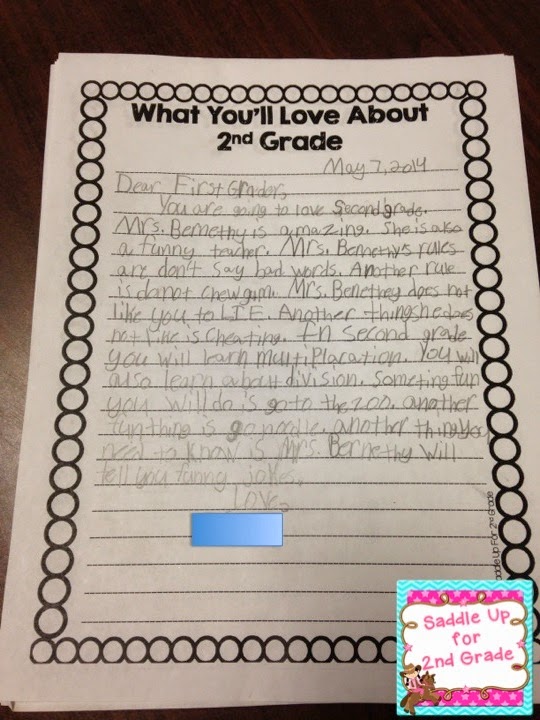 What You'll Love About
2nd Grade
May 7, 2014
Dear First Graders,
You are going to love Second grade.
Mrs. Bernethy is amazing. She is also
a funny teacher. Mrs. Bernethy's rules
are don't say bad words. Another rule
is do not chew gum. Mrs. Benethey does not
like you to LIE. Another thing she does
not like is cheating. In Second grade
you will learn multiplacation. You will
also learn about division. Someting fun
you will do is go to the zoo. another
fun thing is go noodle. another thing you
need to know is Mrs. Bernethy Will
tell you funny jokes.
Love,
addle Up For 2nd Grade
Saddle Up
for
2nd Grade